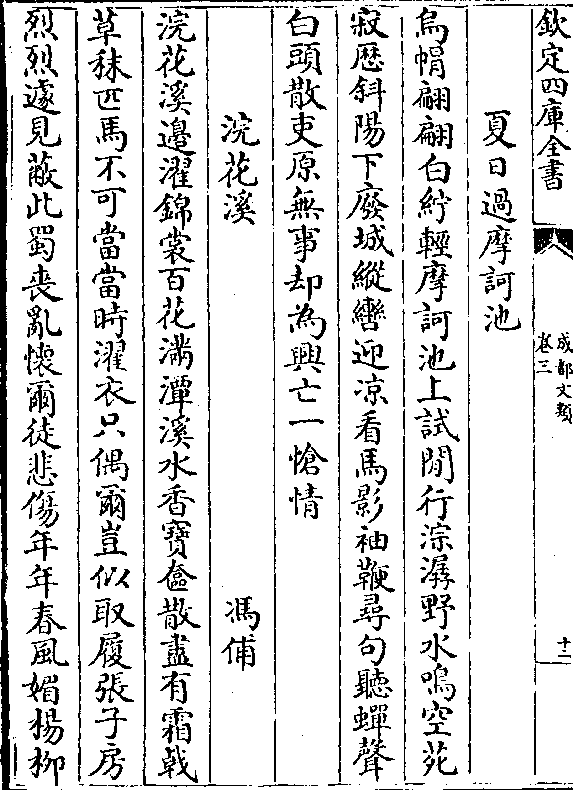 欽定四庫全書
成都文類
卷三
十二
夏日過摩訶池
烏㡌翩翩白紵輕摩訶池上試閒行淙潺野水鳴空苑
寂歴斜陽下廢城縱轡迎凉看馬影袖鞭尋句聽蟬聲
白頭散吏原無事却為興亡一愴情
浣花溪　馮俌
浣花溪邉濯錦裳百花滿潭溪水香寳奩散盡有霜戟
草秣匹馬不可當當時濯衣只偶爾豈似取履張子房
烈烈遽見蔽此蜀喪亂懷爾徒悲傷年年春風媚楊柳